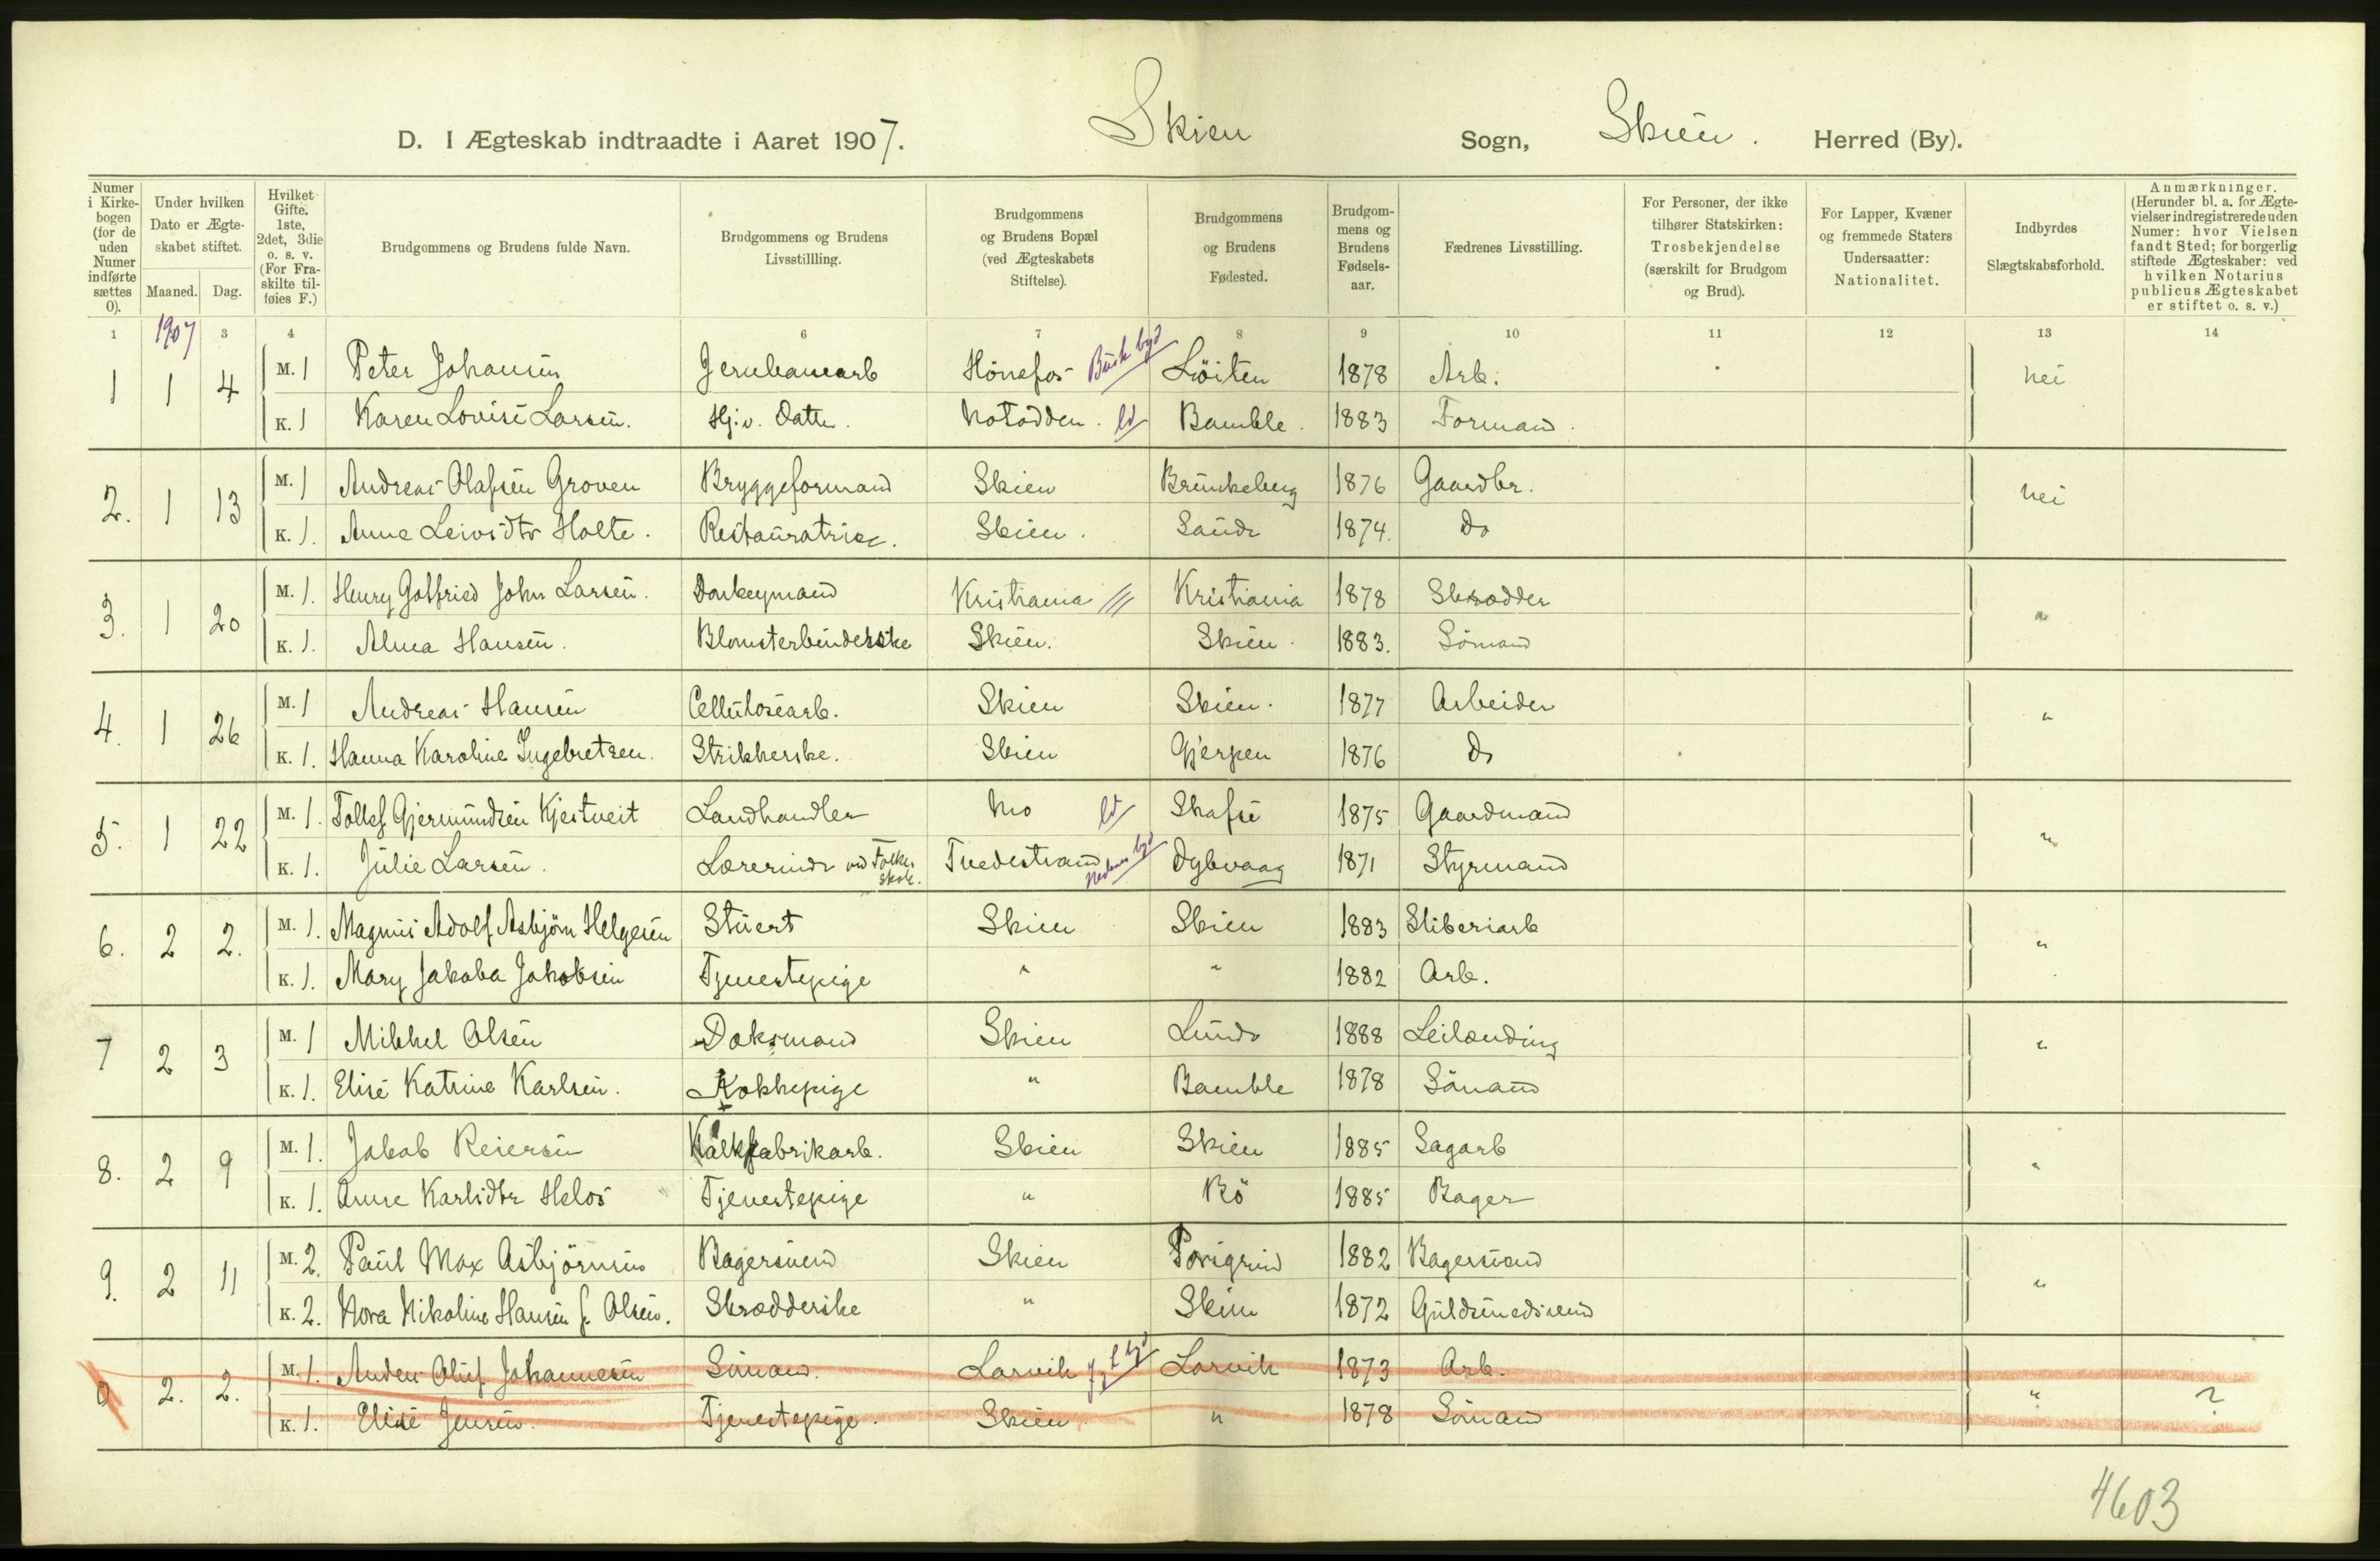 D. I Ægteskab indtraadte i Aaret 1907. Skien Sogn, Skien. Herred (By).
Numer i Kirkebogen (for de uden Numer indførte sættes 0).
Under hvilken Dato er Ægteskabet stiftet. Maaned. Dag.
Hvilket Gifte. 1ste, 2det, 3die o. s. v. (For Fraskilte tilføies F.)
Brudgommens og Brudens fulde Navn.
Brudgommens og Brudens Livsstillling.
Brudgommens og Brudens Bopæl (ved Ægteskabets Stiftelse).
Brudgommens og Brudens Fødested.
Brudgommens og Brudens Fødselsaar.
Fædrenes Livsstilling.
For Personer, der ikke tilhører Statskirken: Trosbekjendelse (særskilt for Brudgom og Brud).
For Lapper, Kvæner og fremmede Staters Undersaatter: Nationalitet.
Indbyrdes Slægtskabsforhold.
Anmærkninger. (Herunder bl. a. for Ægtevielser indregistrerede uden Numer: hvor Vielsen fandt Sted; for borgerlig stiftede Ægteskaber: ved hvilken Notarius publicus Ægteskabet er stiftet o. s. v.)
1 1907 3 4 6 7 8 9 10 11 12 13 14
1 1 4 M. 1 Peter Johansen Jernbanearb Hönefos Busk byd Löiten 1878 Arb. nei
K. 1 Karen Lovise Larsen. Hj. v. Datter. Notodden. ld Bamble. 1883 Formand.
2. 1 13 M. 1 Andreas Olafsen Groven Bryggeformand Skien Brunkeberg 1876 Gaardbr. nei
K. 1. Anne Leivsdtr Holte. Restauratrice. Skien. Saude 1874. Do
3. 1 20 M. 1. Henry Gotfried John Larsen. Donkeymand Kristiania Kristiania 1878 Skrædder "
K. 1. Alma Hansen. Blomsterbinderske Skien. Skien. 1883. Sömand
4. 1 26 M. 1 Andreas Hansen Cellulosearb. Skien Skien. 1877 Arbeider "
K. 1. Hanna Karoline Ingebretsen. Strikkerske. Skien Gjerpen 1876 Do
5. 1 22 M. 1. Tollef Gjermundsen Kjestveit Landhandler Mo ld Skafse 1875 Gaardmand "
K. 1. Julie Larsen. Lærerinde ved Folkeskole. Tvedestrand Nedenes byd Dybvaag 1871 Styrmand
6. 2 2. M. 1. Magnus Adolf Asbjörn Helgesen Stuert Skien Skien 1883 Sliberiarb "
K. 1. Mary Jakoba Jakobsen Tjenestepige " " 1882 Arb.
7 2 3 M. 1 Mikkel Olsen Doksmand Skien Lunde 1888 Leilænding "
K. 1. Elise Katrine Karlsen. Kokkepige " Bamble 1878 Sömand
8. 2 9 M. 1. Jakob Reiersen Kalkfabrikarb. Skien Skien 1885 Sagarb "
K. 1. Anne Karlsdtr Helos Tjenestepige " Bö 1885 Bager
9. 2 11 M. 2. Paul Max Asbjörnsen Bagersvend Skien Porsgrund 1882 Bagersvend "
K. 2. Nora Nikoline Hansen f. Olsen. Skrædderske " Skien 1872 Guldsmedsvend
0 2. 2. M. 1. Anders Oluf Johannesen Sömand. Larvik Larvik 1873 Arb. " ?
K. 1. Elise Jensen. Tjenestepige. Skien. " 1878 Sömand
4603